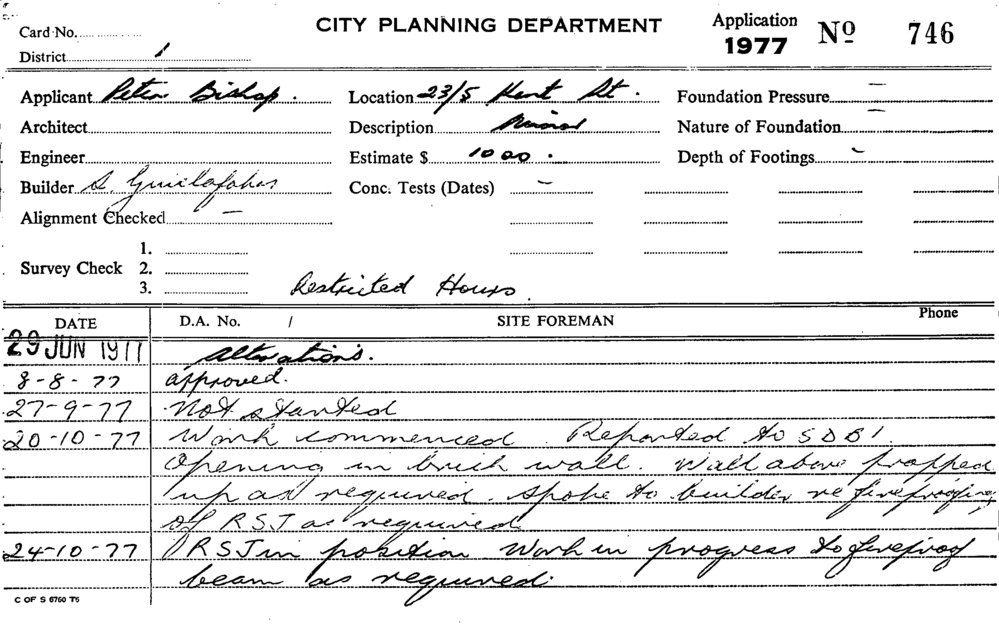 CITY PLANNING DEPARTMENT
Application 1977 No 746
Card No.
District 1
Applicant Peter Bishop.
Location 23/5 Kent St.
Foundation Pressure –
Architect
Description Minor
Nature of Foundation –
Engineer
Estimate $ 1000.
Depth of Footings –
Builder S.
Conc. Tests (Dates) –
Alignment Checked –
Survey Check
1.
2.
3.
Restricted Hours
DATE D.A. No. / SITE FOREMAN Phone
29 JUN 1977 Alterations.
8-8-77 approved.
27-9-77 Not started
20-10-77 Work commenced. Reported to SDBI.
Opening in brick wall. Wall above propped
up as required. Spoke to builder re fireproofing
of RSJ as required
24-10-77 RSJ in position Work in progress to fireproof
beam as required.
C OF S 6760 T6